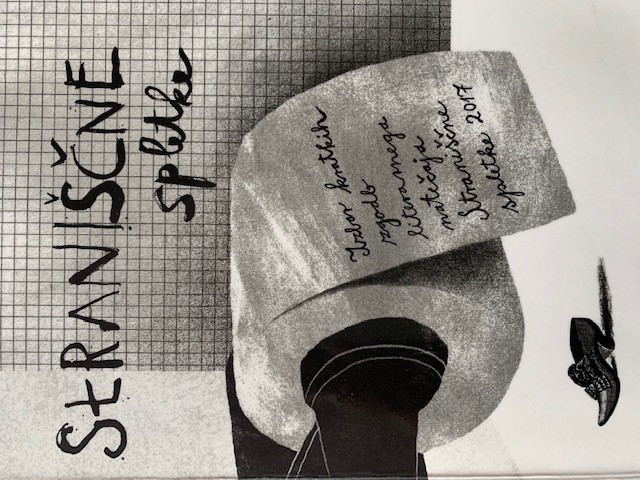 StRANIŠČNE
spletke
Izbor kratkih
zgodb
literarnega
natečaja
Stranišne
spletke 2017